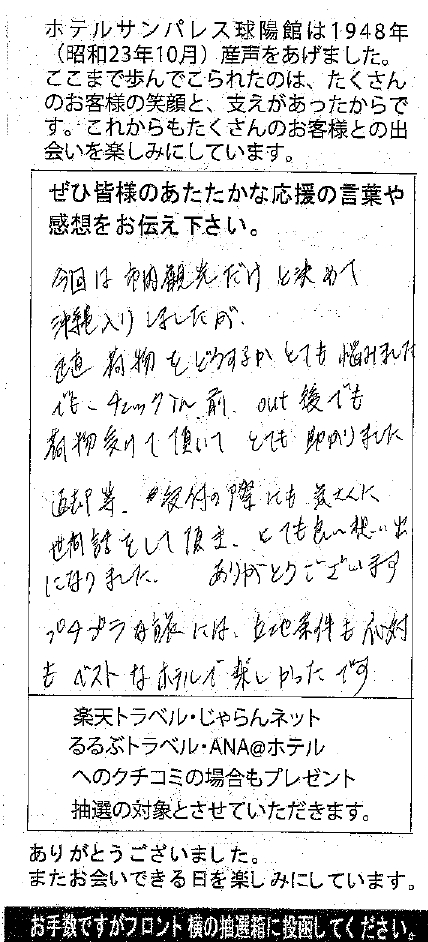 ホテルサンパレス球陽館は1948年
（昭和23年10月）産声をあげました。
ここまで歩んでこられたのは、たくさん
のお客様の笑顔と、支えがあったからで
す。これからもたくさんのお客様との出
会いを楽しみにしています。
ぜひ皆様のあたたかな応援の言葉や
感想をお伝え下さい。
今回は市内観光だけと決めて
沖縄入りしましたが、
正直荷物をどうするかとても悩みました
でも、チェックin前、out後でも
荷物受けて頂いてとても助かりました
返却等、受付の際にも皆さんに
世間話をして頂き、とても良い想い出
になりました。 ありがとうございます
プチプラな旅には、立地条件も応対
も ベストなホテルで楽しかったです
楽天トラベル・じゃらんネット
るるぶトラベル・ANA@ホテル
へのクチコミの場合もプレゼント
抽選の対象とさせていただきます。
ありがとうございました。
またお会いできる日を楽しみにしています。
お手数ですがフロント横の抽選箱に投函してください。